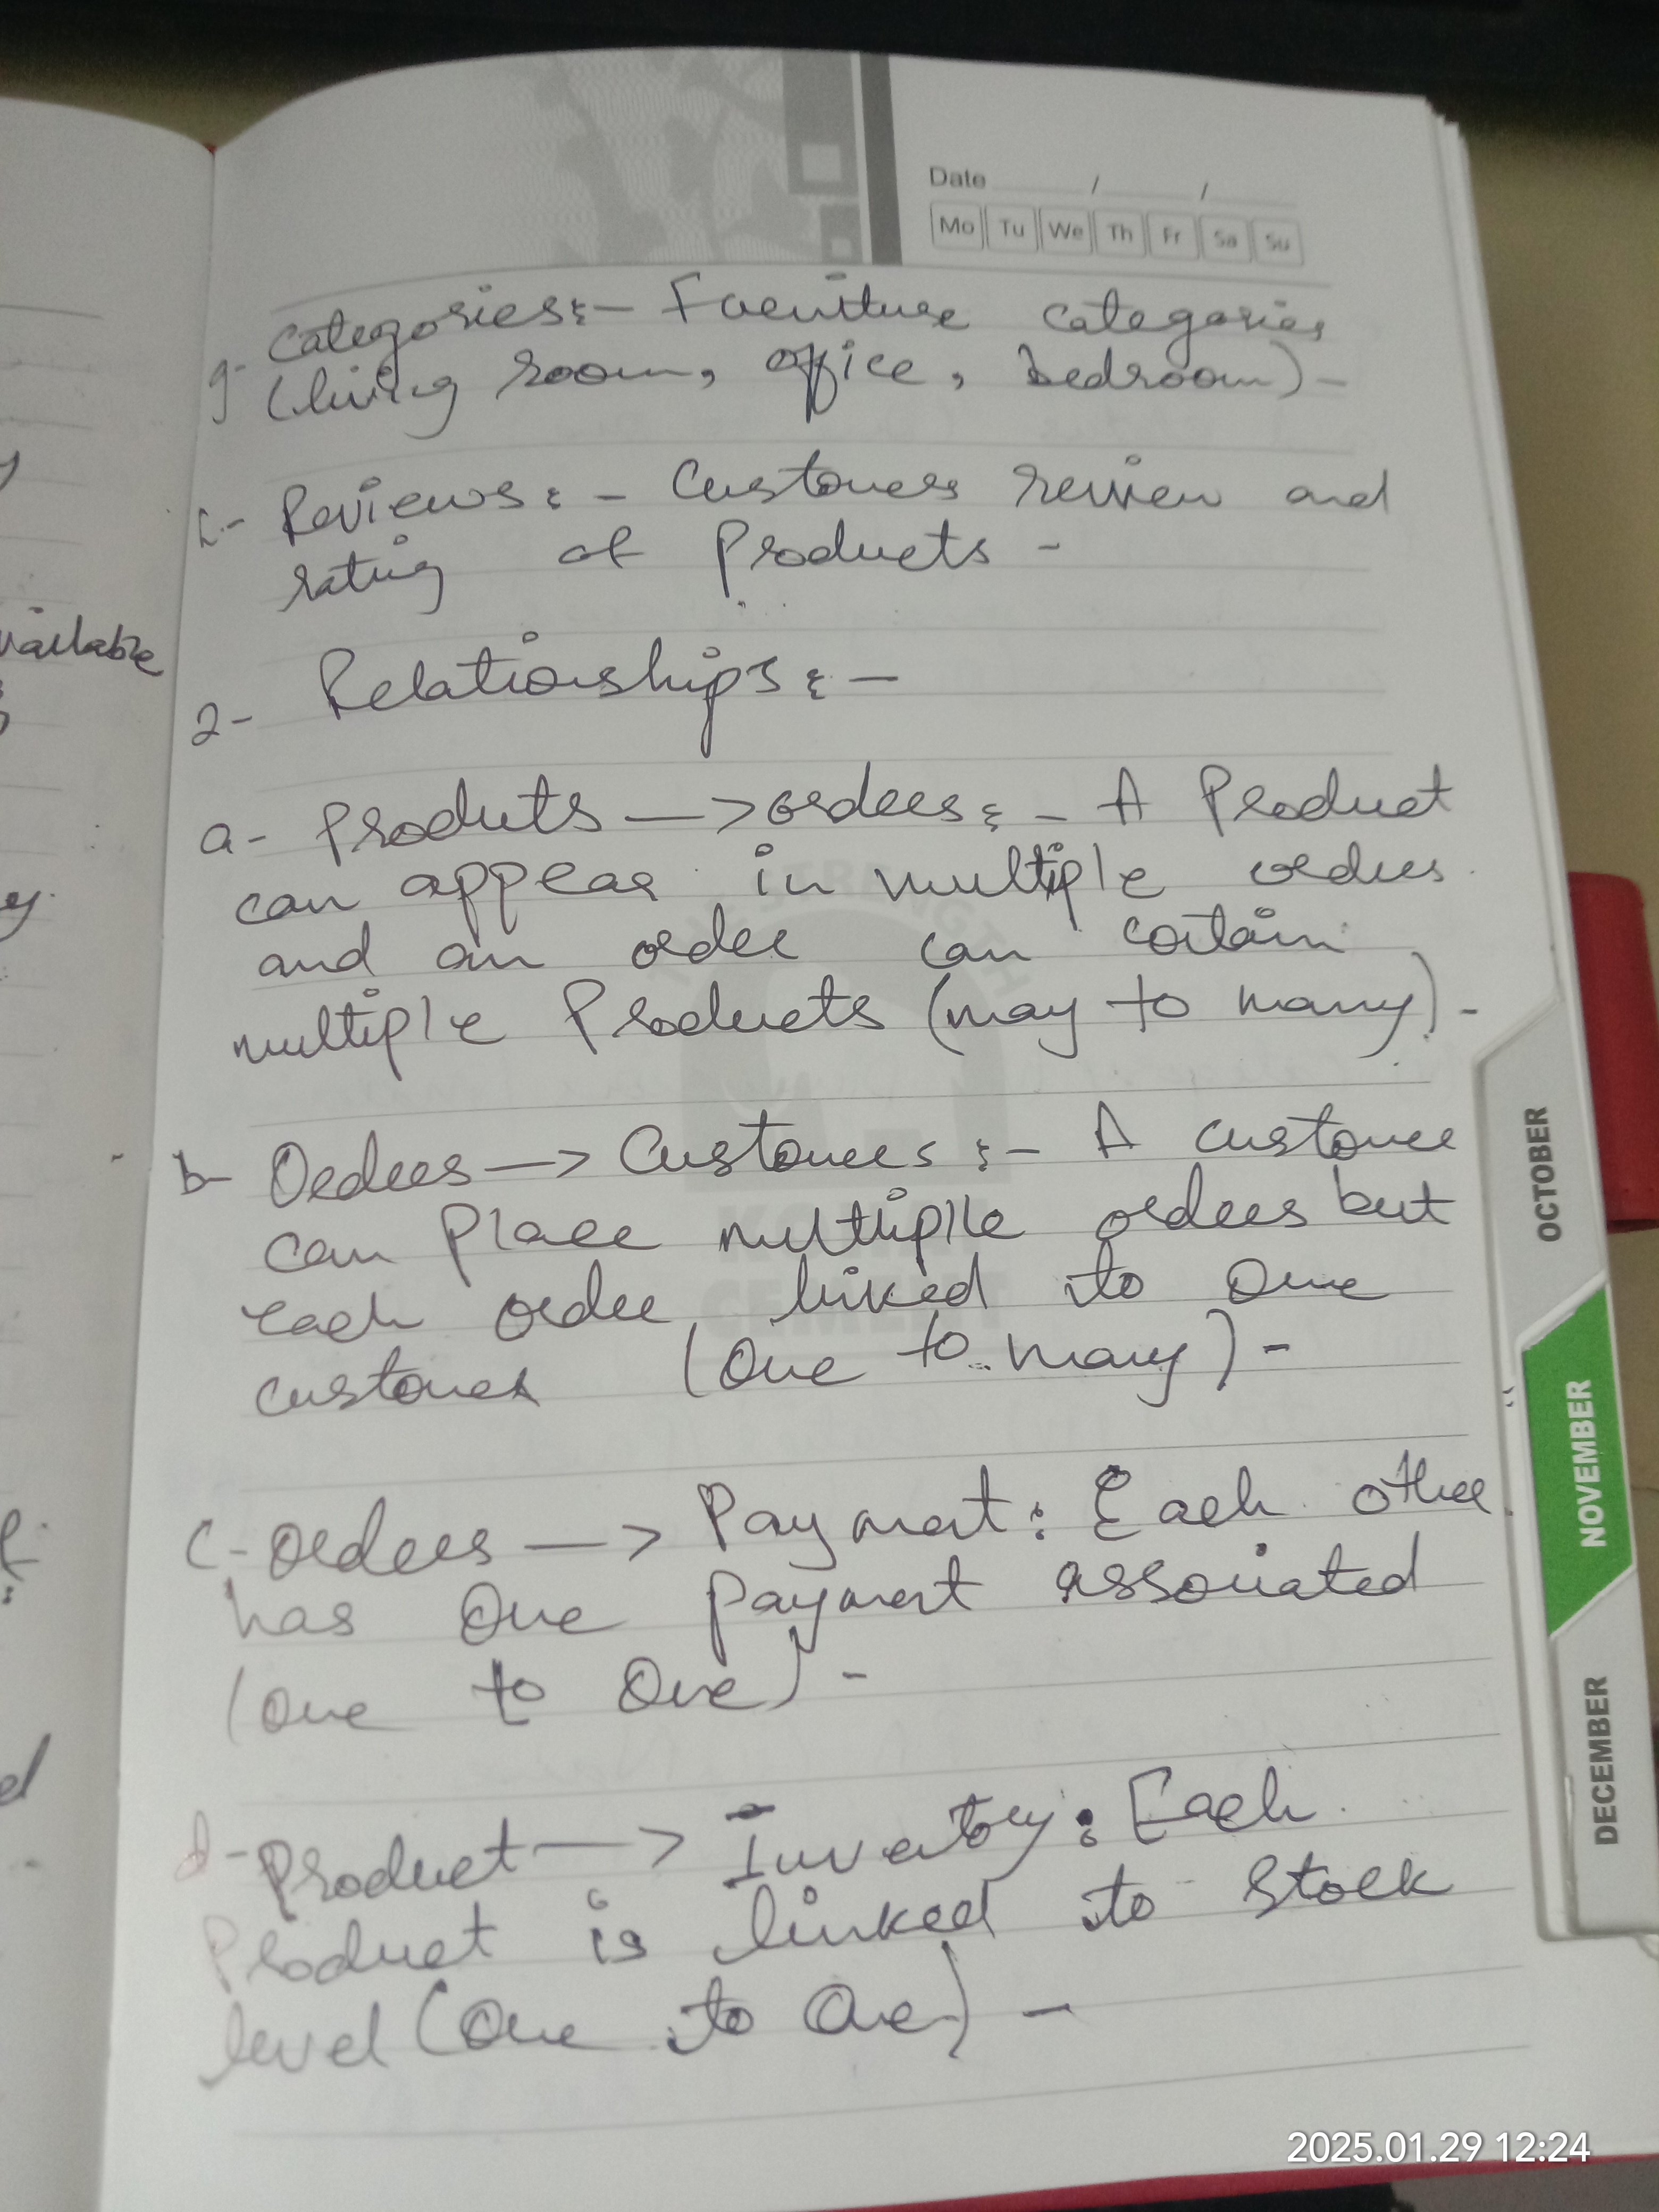 Date / /
Mo Tu We Th Fr Sa Su
g- Categories:- Furniture categories
(living room, office, bedroom)-
Reviews:- Customers review and
rating of Products -
2- Relationships:-
a- Produts —> orders:- A Product
can appear in multiple orders
and an order can cotain
multiple Products (may to many)-
b- Orders —> Customers:- A customer
can Place multiplle orders but
each order linked to one
customer (One to many)-
c- orders —> Payment: Each other
has One payment associated
(one to One)-
d- Product —> Inventory: Each
Product is linked to Stock
level (One to One) -
vailable
CEMENT
OCTOBER
NOVEMBER
DECEMBER
2025.01.29 12:24